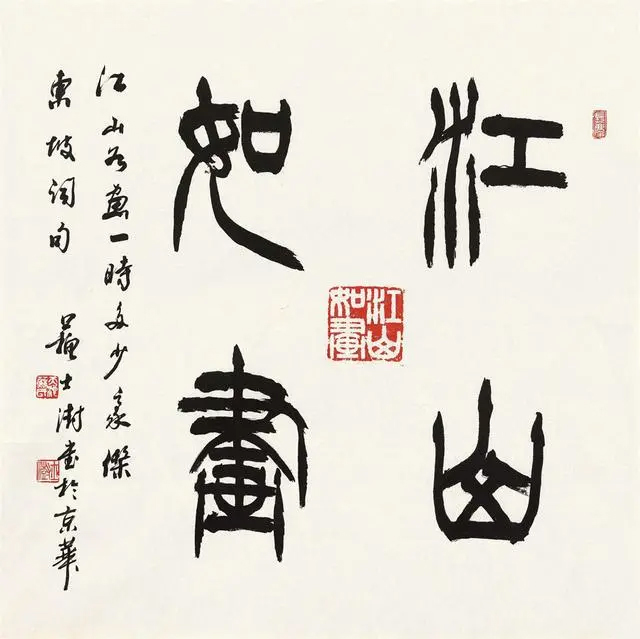 江山
如畫
江山如畫
江山如畫一時多少豪傑
東坡詞句 蘇士澍書於京華